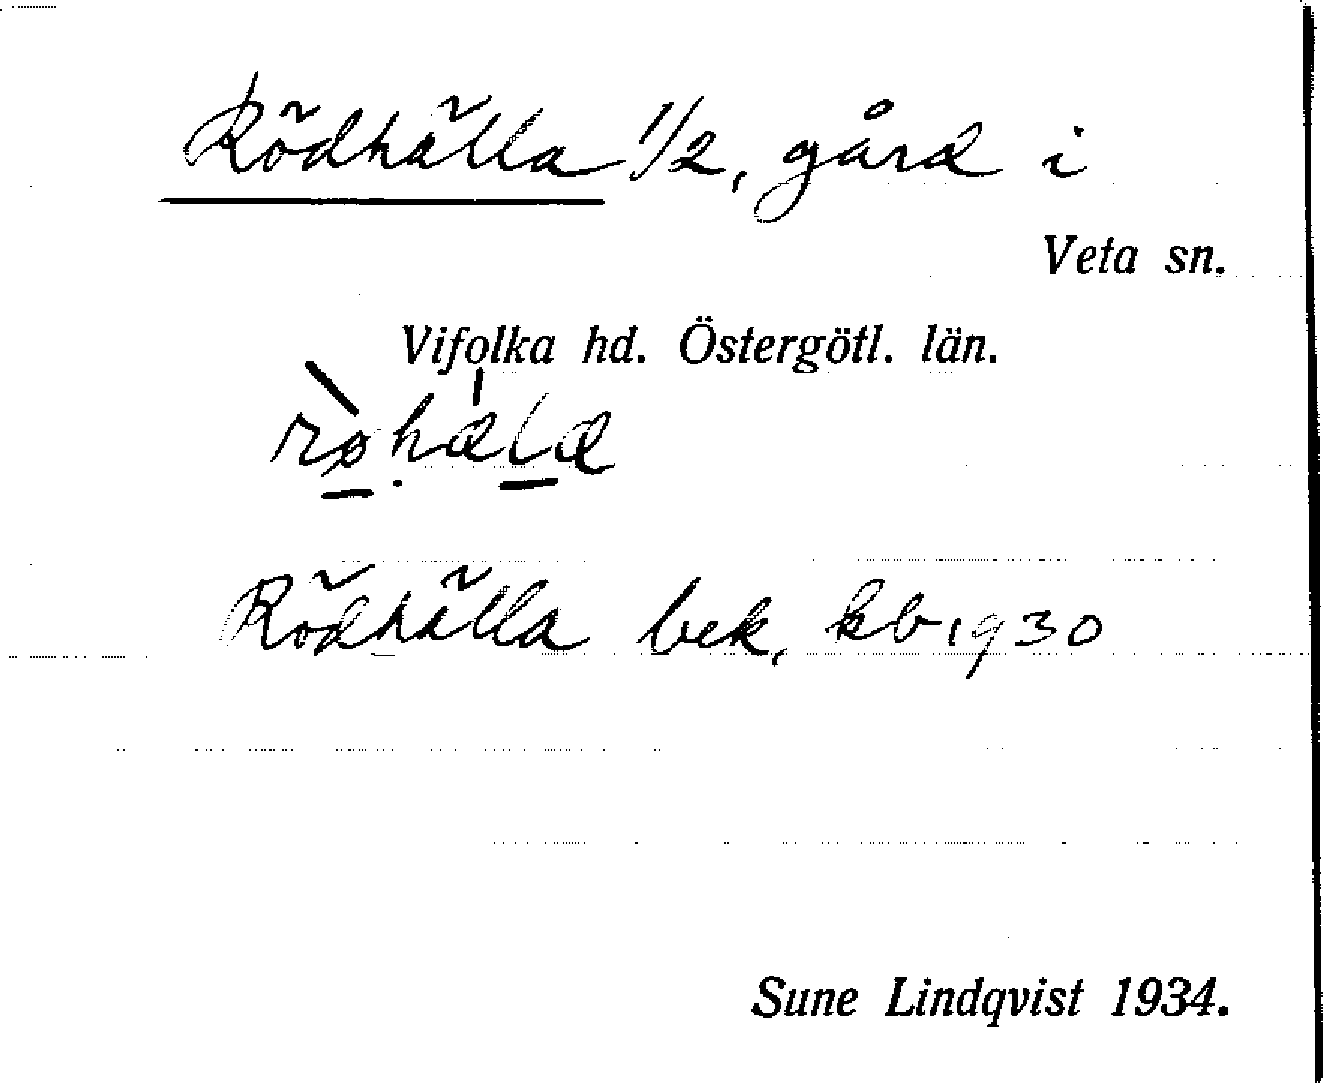 Rödhälla 1/2, gård i
Veta sn.
Vifolka hd. Östergötl. län.
rø̀hǽla
Rödhälla bek, kb 1930
Sune Lindqvist 1934.